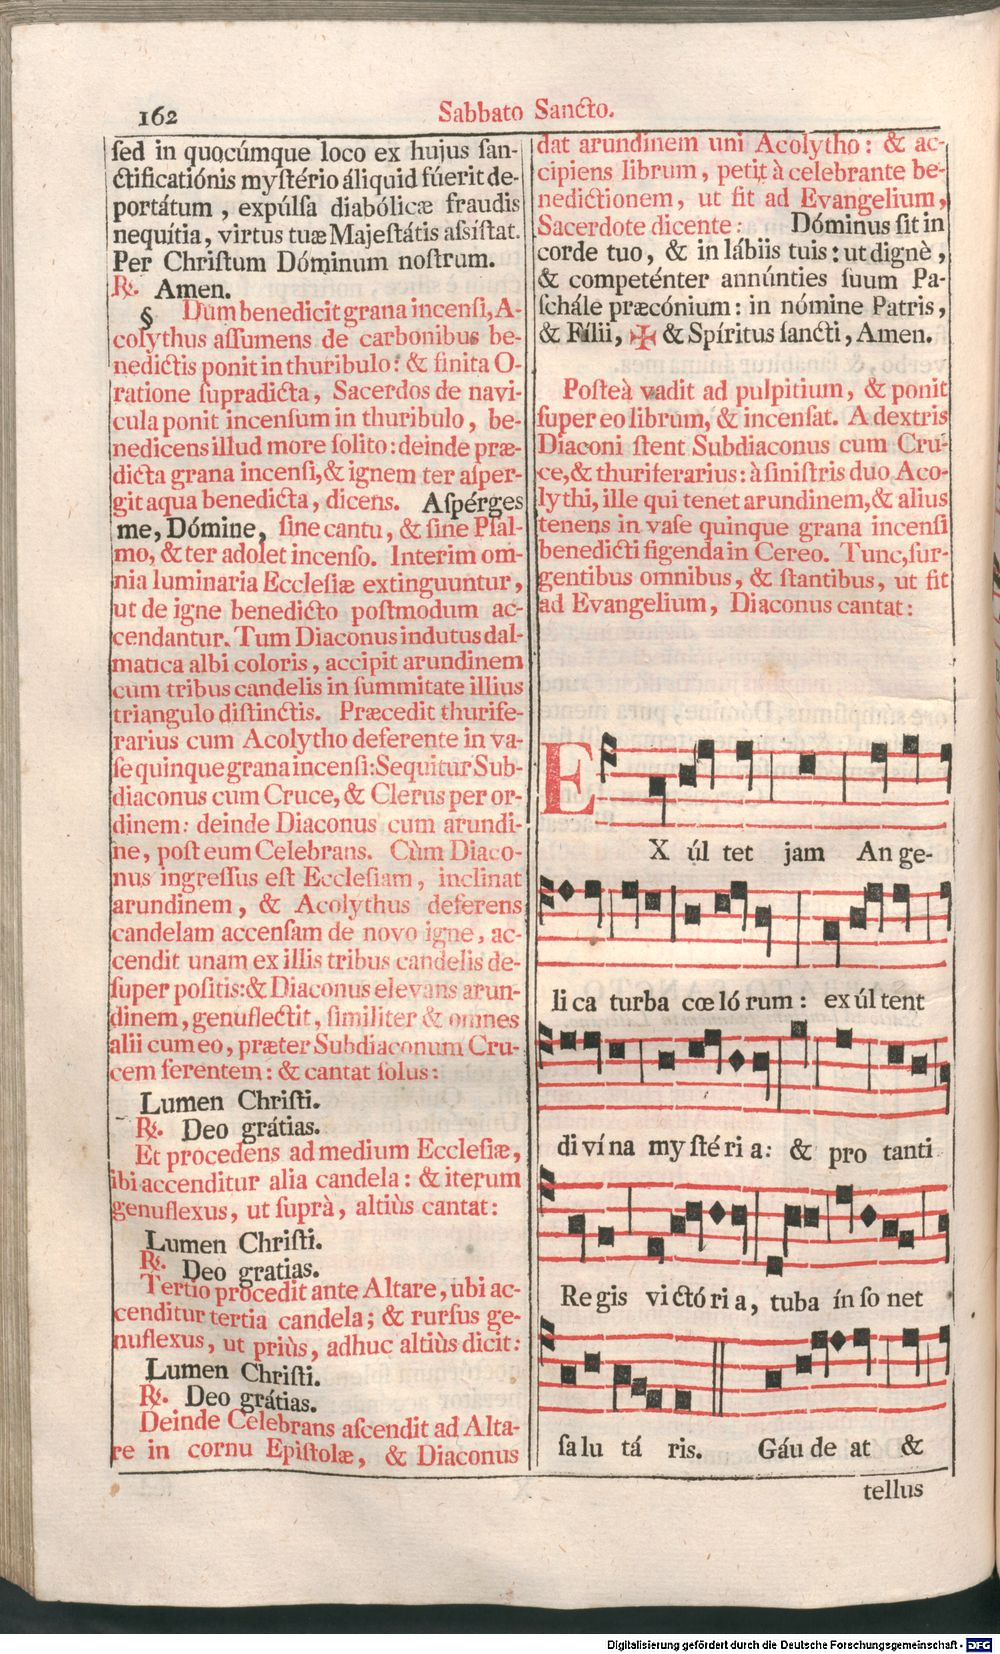 162
Sabbato Sancto.
ſed in quocúmque loco ex hujus ſan-
ctificatiónis myſtério áliquid fúerit de-
portátum , expúlſa diabólicæ fraudis
nequítia, virtus tuæ Majeſtátis aſsíſtat.
Per Chriſtum Dóminum noſtrum.
℟. Amen.
§ Dum benedicit grana incenſi, A-
colythus aſſumens de carbonibus be-
nedictis ponit in thuribulo: & finita O-
ratione ſupradicta, Sacerdos de navi-
cula ponit incenſum in thuribulo , be-
nedicens illud more ſolito: deinde præ-
dicta grana incenſi, & ignem ter aſper-
git aqua benedicta, dicens. Aſpérges
me, Dómine, ſine cantu, & ſine Pſal-
mo, & ter adolet incenſo. Interim om-
nia luminaria Eccleſiæ extinguuntur,
ut de igne benedicto poſtmodum ac-
cendantur. Tum Diaconus indutus dal-
matica albi coloris, accipit arundinem
cum tribus candelis in ſummitate illius
triangulo diſtinctis. Præcedit thurife-
rarius cum Acolytho deferente in va-
ſe quinque grana incenſi: Sequitur Sub-
diaconus cum Cruce, & Clerus per or-
dinem: deinde Diaconus cum arundi-
ne, poſt eum Celebrans. Cùm Diaco-
nus ingreſſus eſt Eccleſiam, inclinat
arundinem, & Acolythus deferens
candelam accenſam de novo igne, ac-
cendit unam ex illis tribus candelis de-
ſuper poſitis: & Diaconus elevans arun-
dinem, genuflectit, ſimiliter & omnes
alii cum eo, præter Subdiaconum Cru-
cem ferentem: & cantat ſolus:
Lumen Chriſti.
℟. Deo grátias.
Et procedens ad medium Eccleſiæ,
ibi accenditur alia candela: & iterum
genuflexus, ut ſuprà, altiùs cantat:
Lumen Chriſti.
℟. Deo gratias.
Tertio procedit ante Altare, ubi ac-
cenditur tertia candela; & rurſus ge-
nuflexus, ut priùs, adhuc altiùs dicit:
Lumen Chriſti.
℟. Deo grátias.
Deinde Celebrans aſcendit ad Alta-
re in cornu Epiſtolæ, & Diaconus
dat arundinem uni Acolytho: & ac-
cipiens librum, petit à celebrante be-
nedictionem, ut fit ad Evangelium,
Sacerdote dicente: Dóminus ſit in
corde tuo, & in lábiis tuis: ut dignè,
& competénter annúnties ſuum Pa-
ſchále præcónium: in nómine Patris,
& Fílii, ✠ & Spíritus ſancti, Amen.
Poſteà vadit ad pulpitium, & ponit
ſuper eo librum, & incenſat. A dextris
Diaconi ſtent Subdiaconus cum Cru-
ce, & thuriferarius: à ſiniſtris duo Aco-
lythi, ille qui tenet arundinem, & alius
tenens in vaſe quinque grana incenſi
benedicti figenda in Cereo. Tunc, ſur-
gentibus omnibus, & ſtantibus, ut fit
ad Evangelium, Diaconus cantat:
EX úl tet jam An ge-
li ca turba cœ ló rum: ex úl tent
di ví na my ſté ri a: & pro tanti
Re gis vi ctó ri a, tuba ín ſo net
ſa lu tá ris. Gáu de at &
tellus
Digitalisierung gefördert durch die Deutsche Forschungsgemeinschaft - DFG